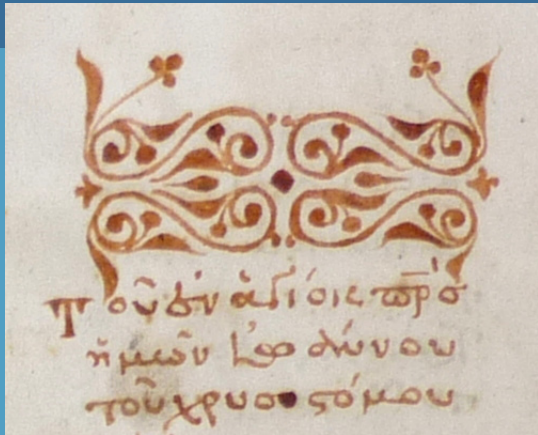 Τοῦ ἐν ἁγίοις πρ̅ς
ἡμῶν Ἰωάννου
τοῦ χρυσοστόμου